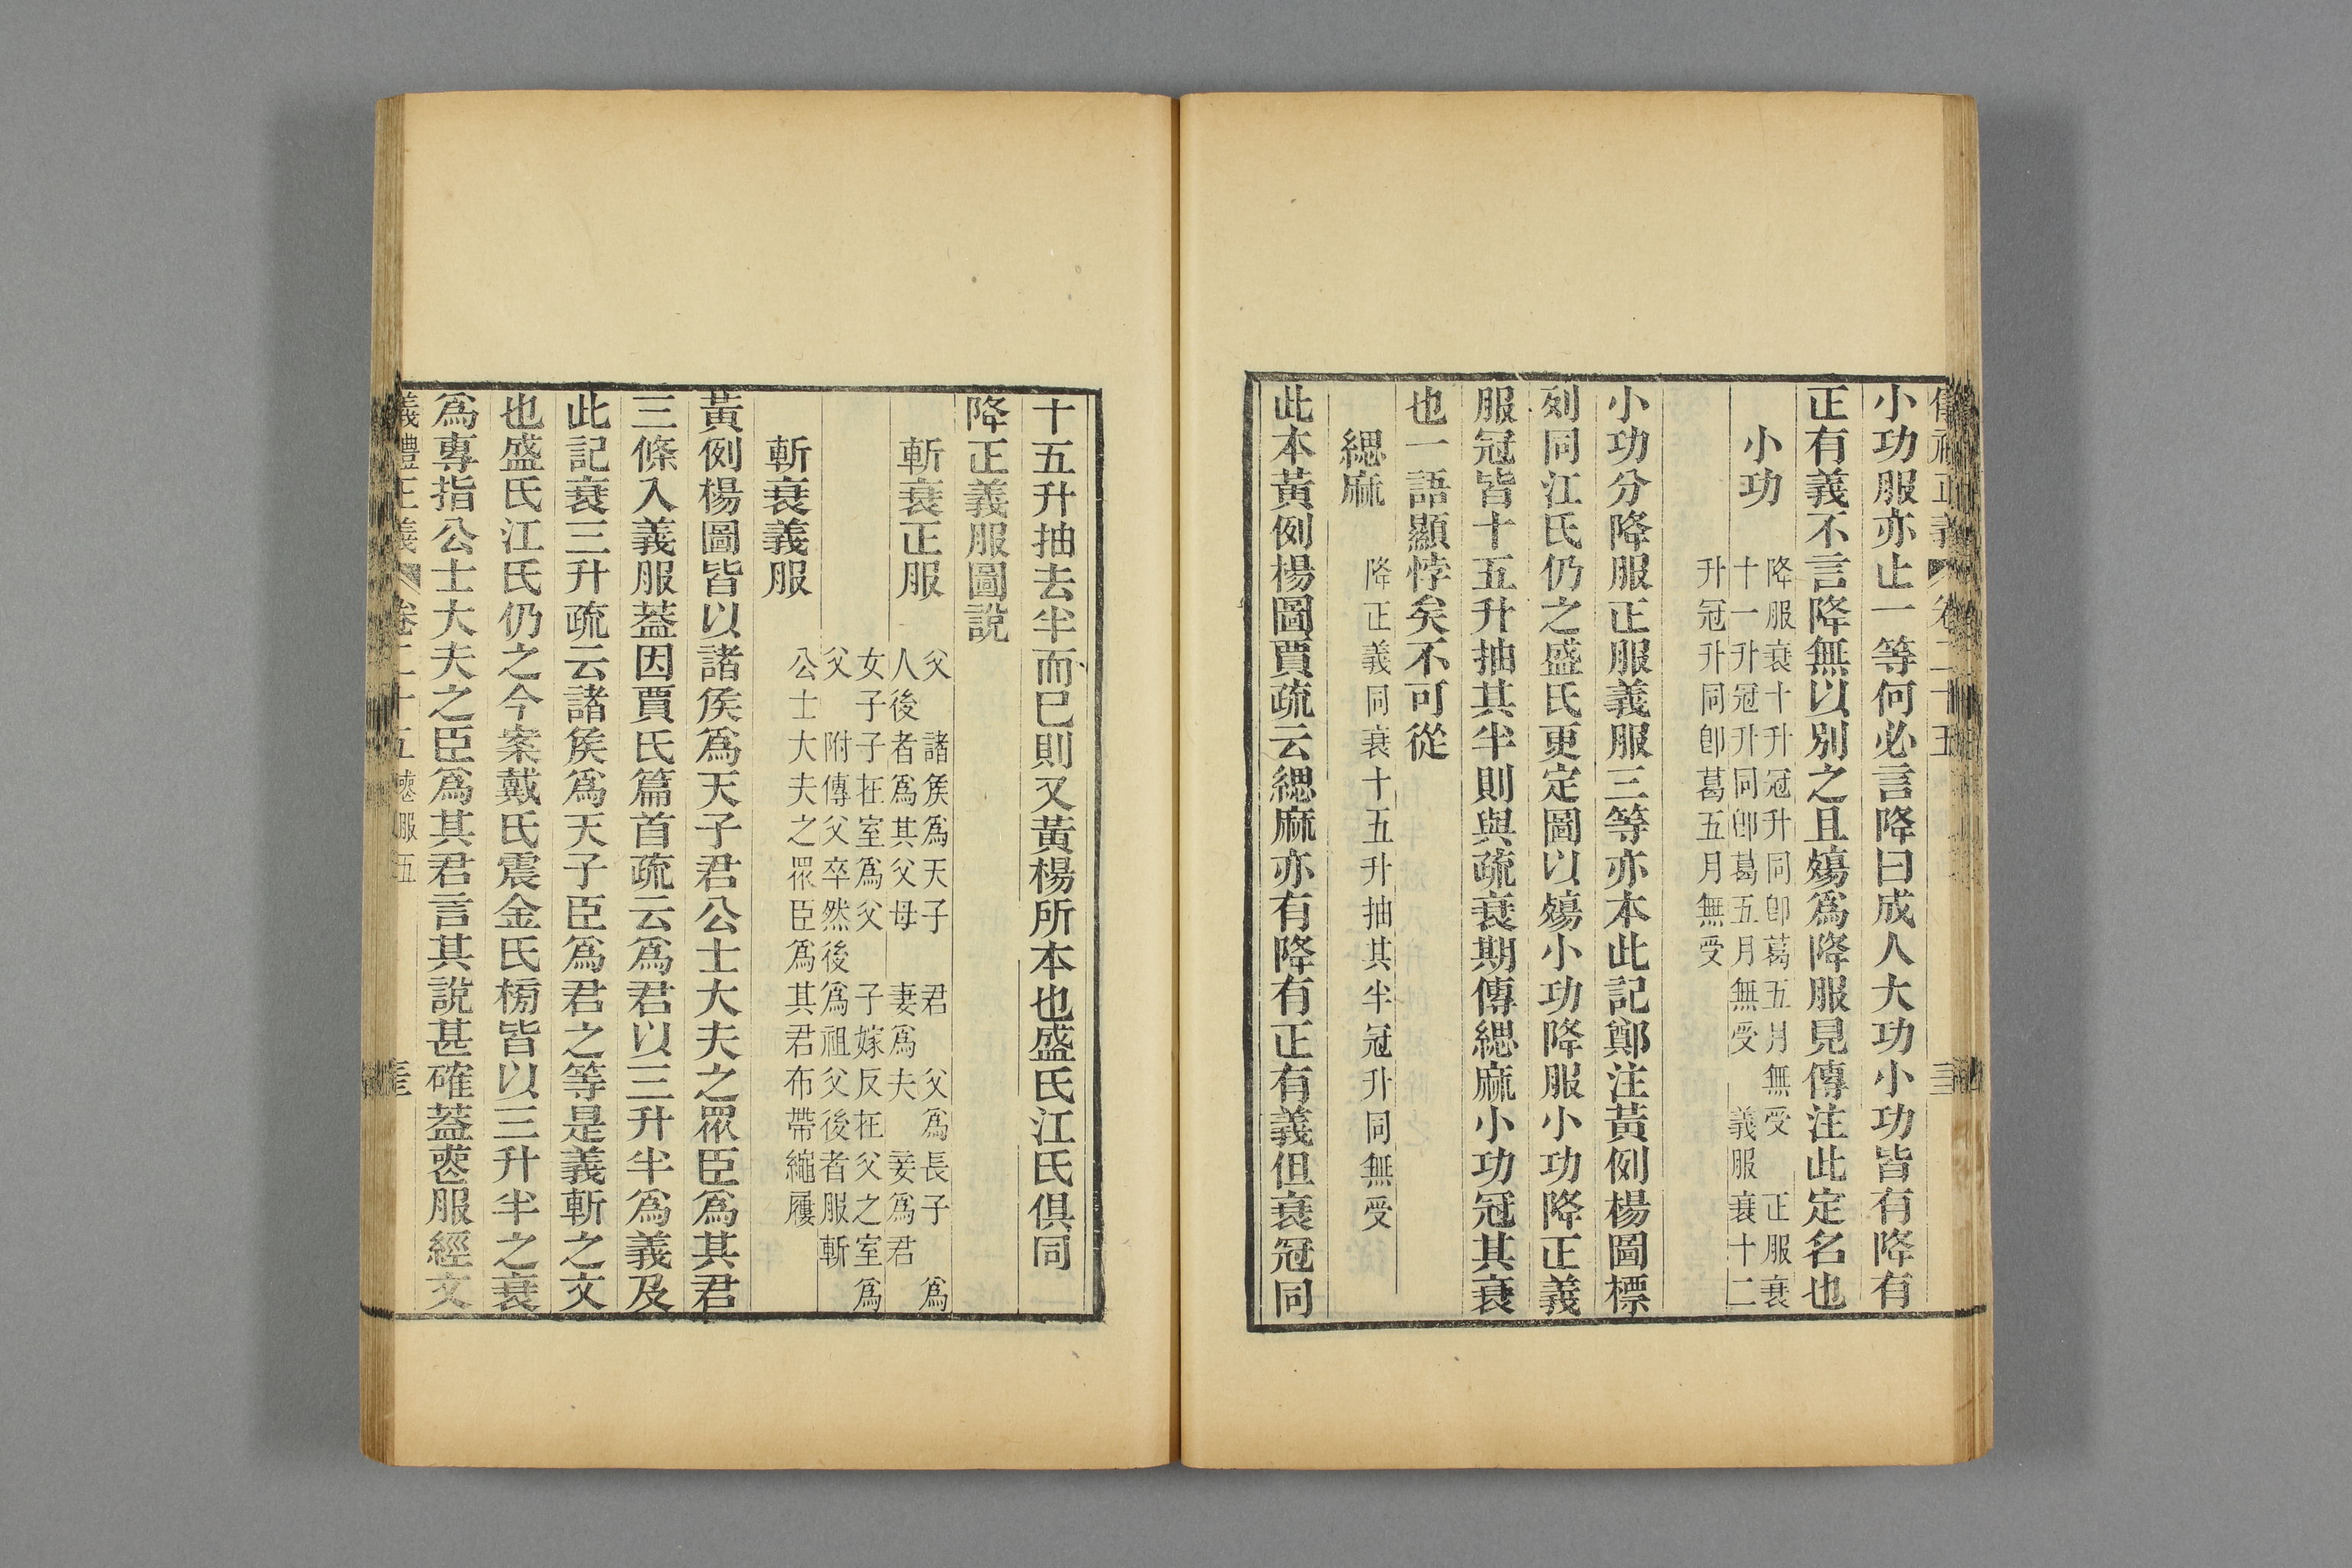 儀禮正義 卷二十五
小功服亦止一等何必言降曰成人大功小功皆有降有
正有義不言降無以別之且殤爲降服見傳注此定名也
小功
降服衰十升冠升同卽葛五月無受 正服衰
十一升冠升同卽葛五月無受 義服衰十二
升冠升同卽葛五月無受
小功分降服正服義服三等亦本此記鄭注黃例楊圖標
列同江氏仍之盛氏更定圖以殤小功降服小功降正義
服冠皆十五升抽其半則與疏衰期傳緦麻小功冠其衰
也一語顯悖矣不可從
緦麻
降正義同衰十五升抽其半冠升同無受
此本黃例楊圖賈疏云緦麻亦有降有正有義但衰冠同
十五升抽去半而已則又黃楊所本也盛氏江氏俱同
降正義服圖說
斬衰正服
父 諸矦爲天子 君 父爲長子 爲
人後者爲其父母 妻爲夫 妾爲君
女子子在室爲父 子嫁反在父之室爲
父 附傳父卒然後爲祖父後者服斬
斬衰義服
公士大夫之眾臣爲其君布帶繩屨
黃例楊圖皆以諸矦爲天子君公士大夫之眾臣爲其君
三條入義服蓋因賈氏篇首疏云爲君以三升半爲義及
此記衰三升疏云諸矦爲天子臣爲君之等是義斬之文
也盛氏江氏仍之今案戴氏震金氏榜皆以三升半之衰
爲專指公士大夫之臣爲其君言其說甚確蓋喪服經文
義禮正義 卷二十五 喪服五